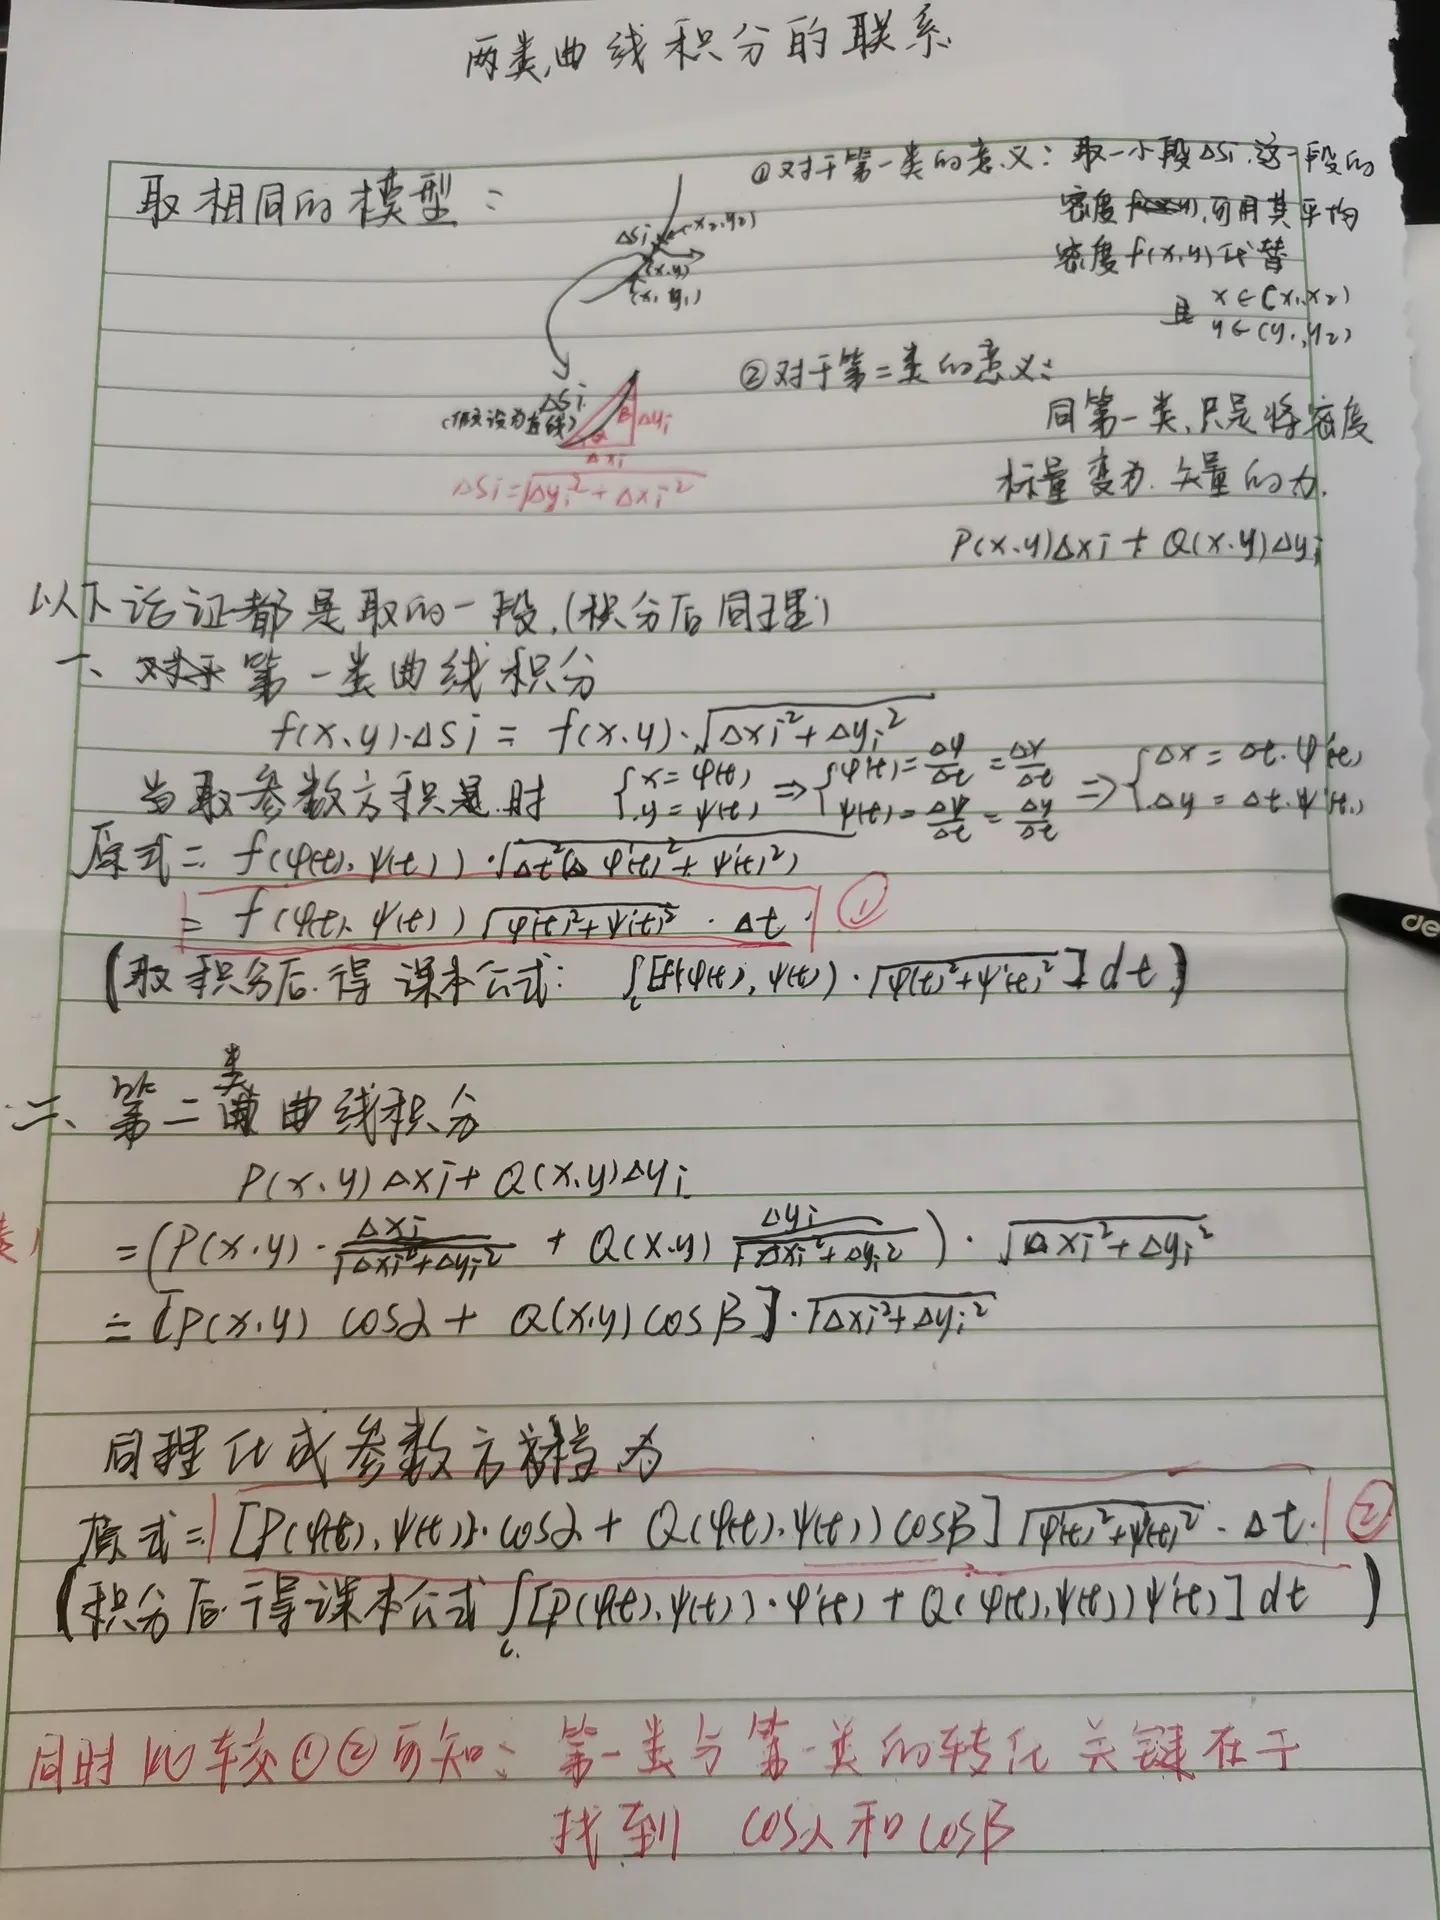 两类曲线积分的联系
取相同的模型：
ΔSi (x2,y2)
(x,y)
(x1,y1)
ΔSi
(假设为直线) β Δyi
α
Δxi
ΔSi=√(Δyi²+Δxi²)
①对于第一类的意义：取一小段ΔSi,这一段的
密度 可用其平均
密度f(x,y)代替
且 x∈(x1,x2)
y∈(y1,y2)
②对于第二类的意义：
同第一类,只是将密度
标量变为 矢量的力.
P(x,y)Δxi + Q(x,y)Δyi
以下论证都是取的一段,(积分后同理)
一、第一类曲线积分
f(x,y)·ΔSi = f(x,y)·√(Δxi²+Δyi²)
当取参数方程是时 {x=φ(t) y=ψ(t) ⇒ {φ'(t)=Δφ/Δt=Δx/Δt ψ'(t)=Δψ/Δt=Δy/Δt ⇒ {Δx=Δt·φ'(t) Δy=Δt·ψ'(t)
原式= f(φ(t),ψ(t))·√(Δt²(φ'(t)²+ψ'(t)²))
= f(φ(t),ψ(t))√(φ'(t)²+ψ'(t)²)·Δt. ①
(取积分后.得课本公式: ∫L[f(φ(t),ψ(t))·√(φ'(t)²+ψ'(t)²)]dt)
二、第二类曲线积分
P(x,y)Δxi+Q(x,y)Δyi
=(P(x,y)·Δxi/√(Δxi²+Δyi²) + Q(x,y)Δyi/√(Δxi²+Δyi²))·√(Δxi²+Δyi²)
=[P(x,y) cosα + Q(x,y)cosβ]·√(Δxi²+Δyi²)
同理化成参数方程为
原式=[P(φ(t),ψ(t))·cosα + Q(φ(t),ψ(t))cosβ]√(φ'(t)²+ψ'(t)²)·Δt. ②
(积分后.得课本公式∫L[P(φ(t),ψ(t))·φ'(t)+Q(φ(t),ψ(t))ψ'(t)]dt )
同时比较①②可知：第一类与第一类的转化关键在于
找到 cosα和cosβ
de